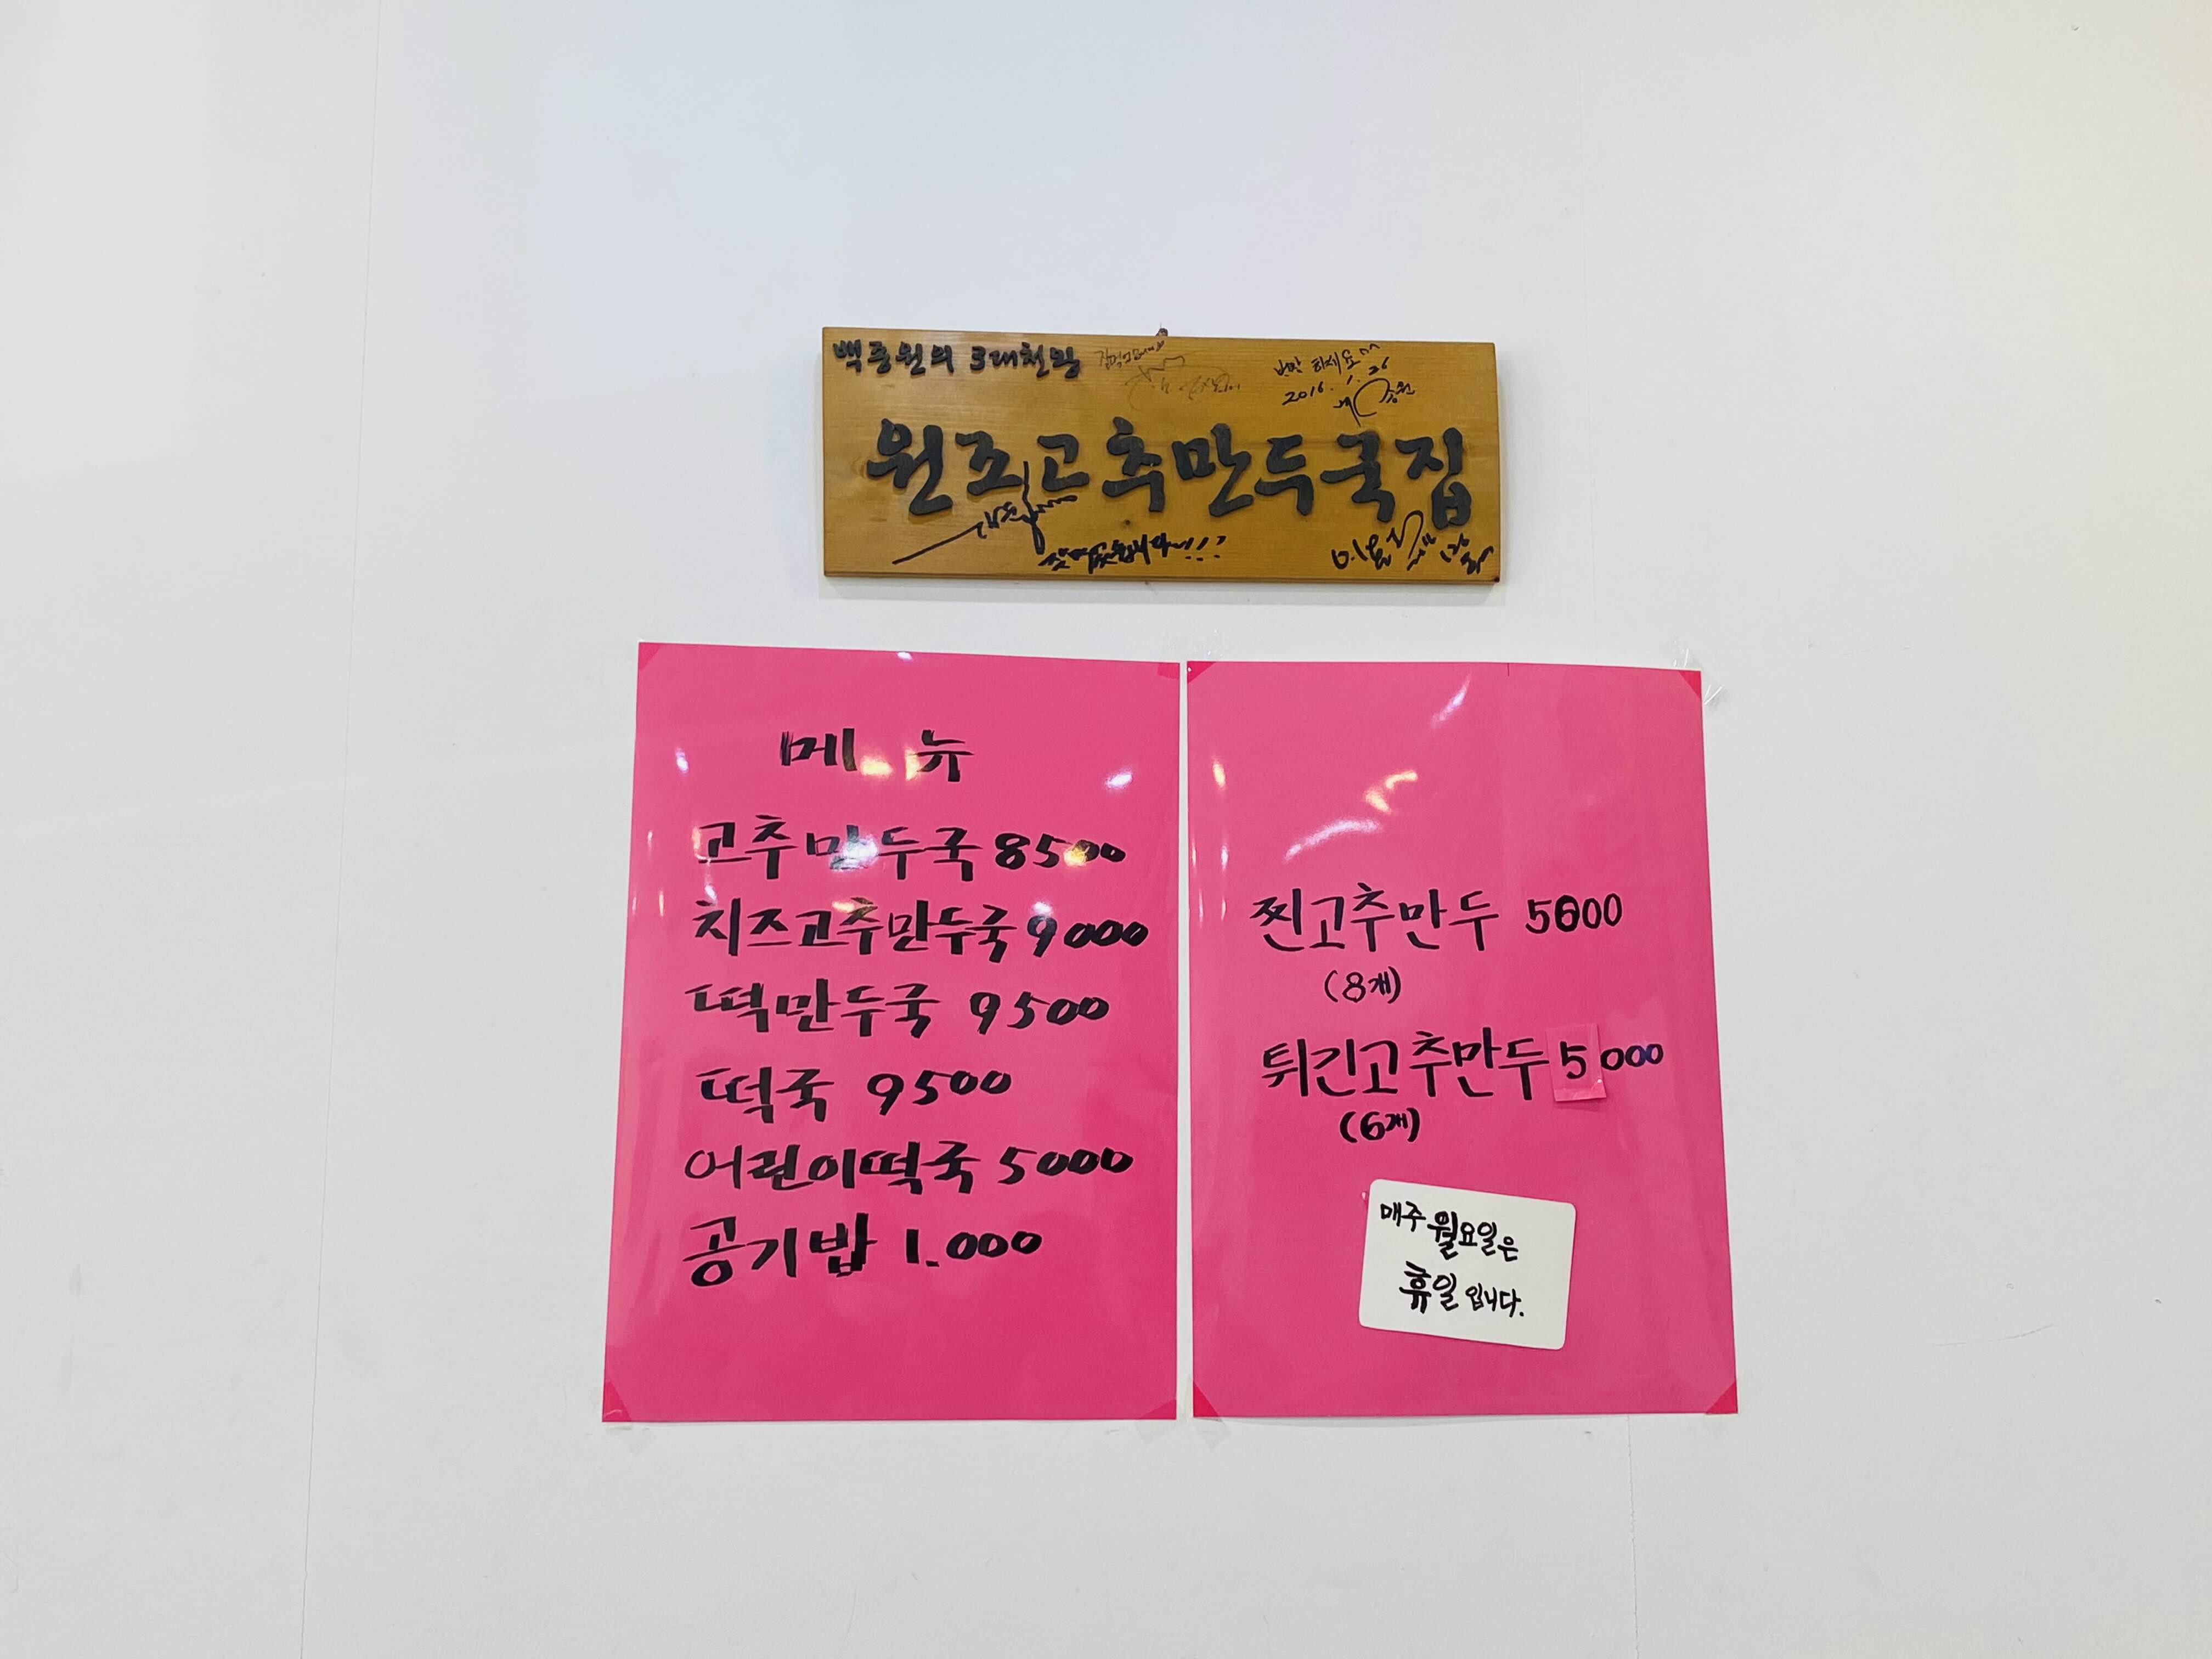 백종원의 3대천왕
2016. 1. 26
원조고추만두국집
메뉴
고추만두국 8500
치즈고추만두국 9000
떡만두국 9500
떡국 9500
어린이떡국 5000
공기밥 1.000
찐고추만두 5000
(8개)
튀긴고추만두 5000
(6개)
매주 월요일은
휴일 입니다.